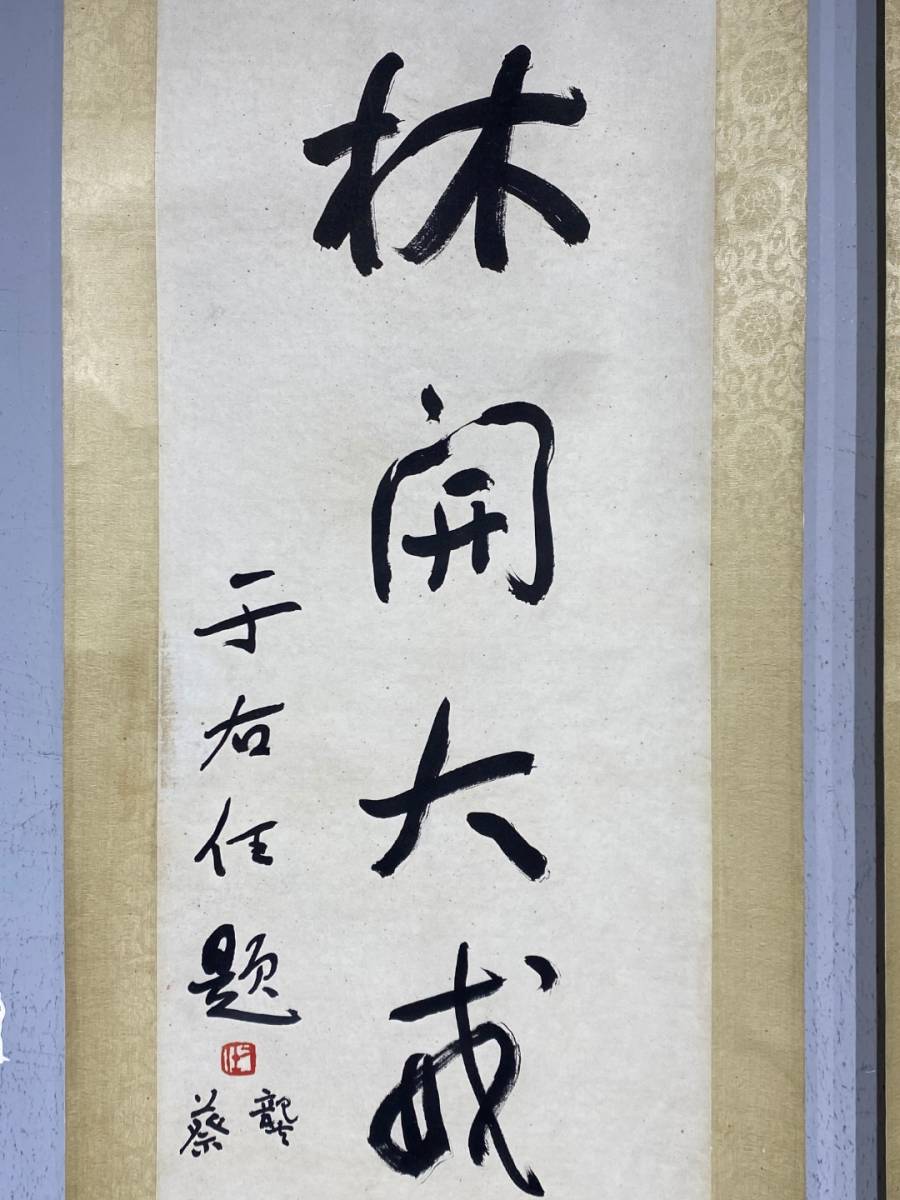 林開大戒
于右任題
龔
蔡